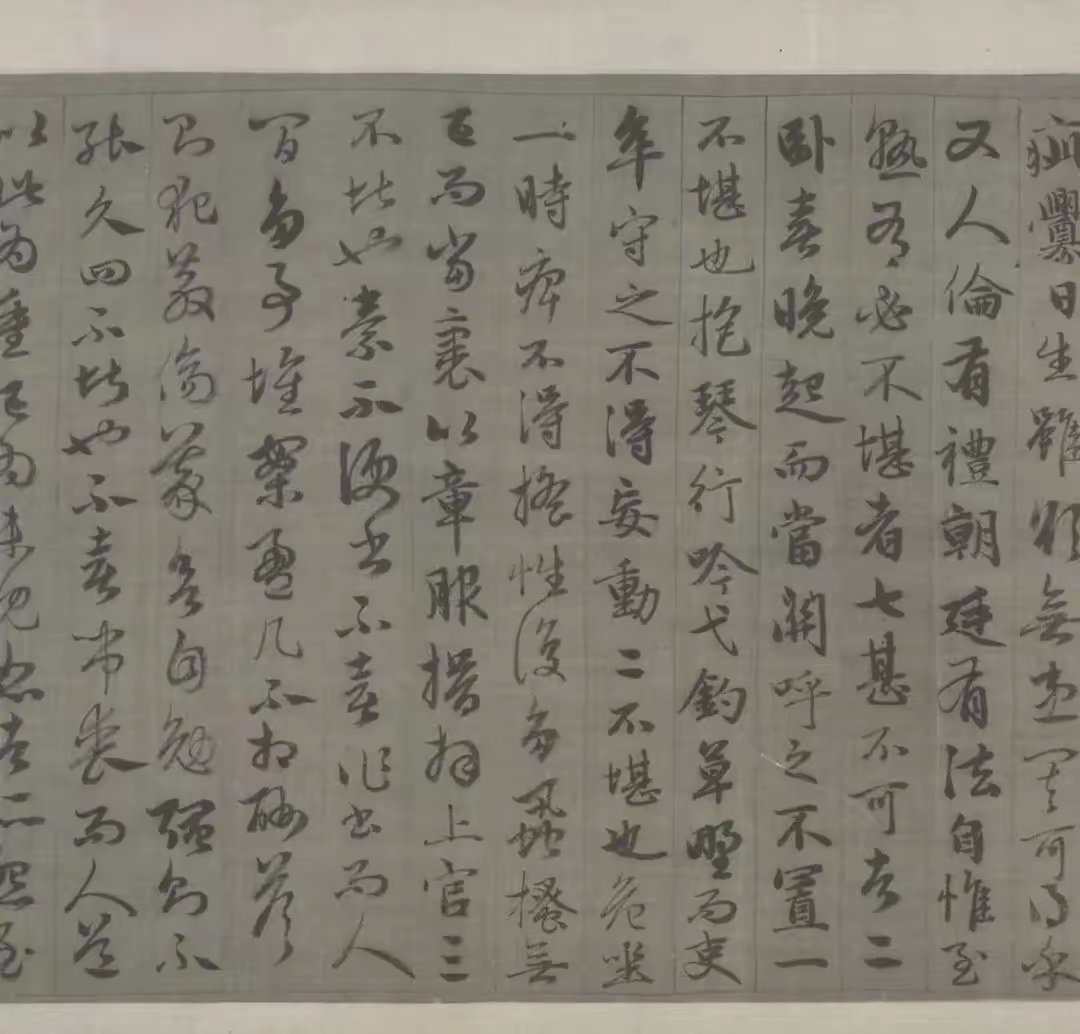 疵釁日生雖欲無患其可得乎
又人倫有禮朝廷有法自惟至
熟有必不堪者七甚不可者二
卧喜晚起而當關呼之不置一
不堪也抱琴行吟弋釣草野而吏
卒守之不得妄動二不堪也危坐
一時痺不得搖性復多虱搔無
已而當裹以章服揖拜上官三
不堪也素不便書不喜作書而人
間多事堆案盈几不相酬答
則犯教傷義欲自勉強則不
能久四不堪也不喜弔喪而人道
以此為重已為未見恕者所怨至